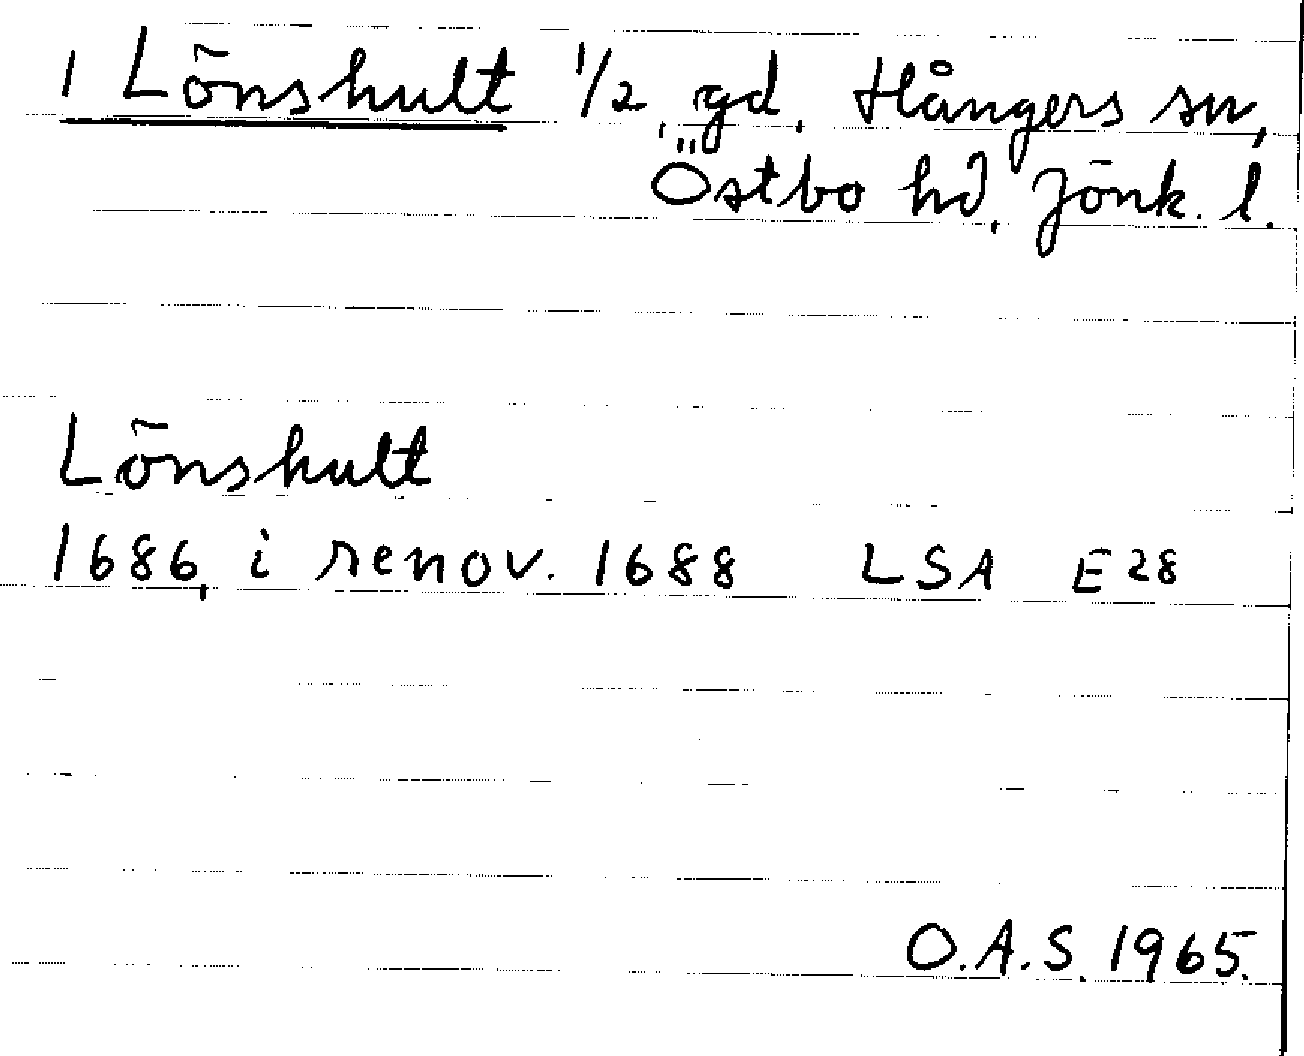 1 Lönshult 1/2 gd, Hångers sn,
Östbo hd, Jönk. l.
Lönshult
1686, i renov. 1688 LSA E28
O.A.S. 1965.